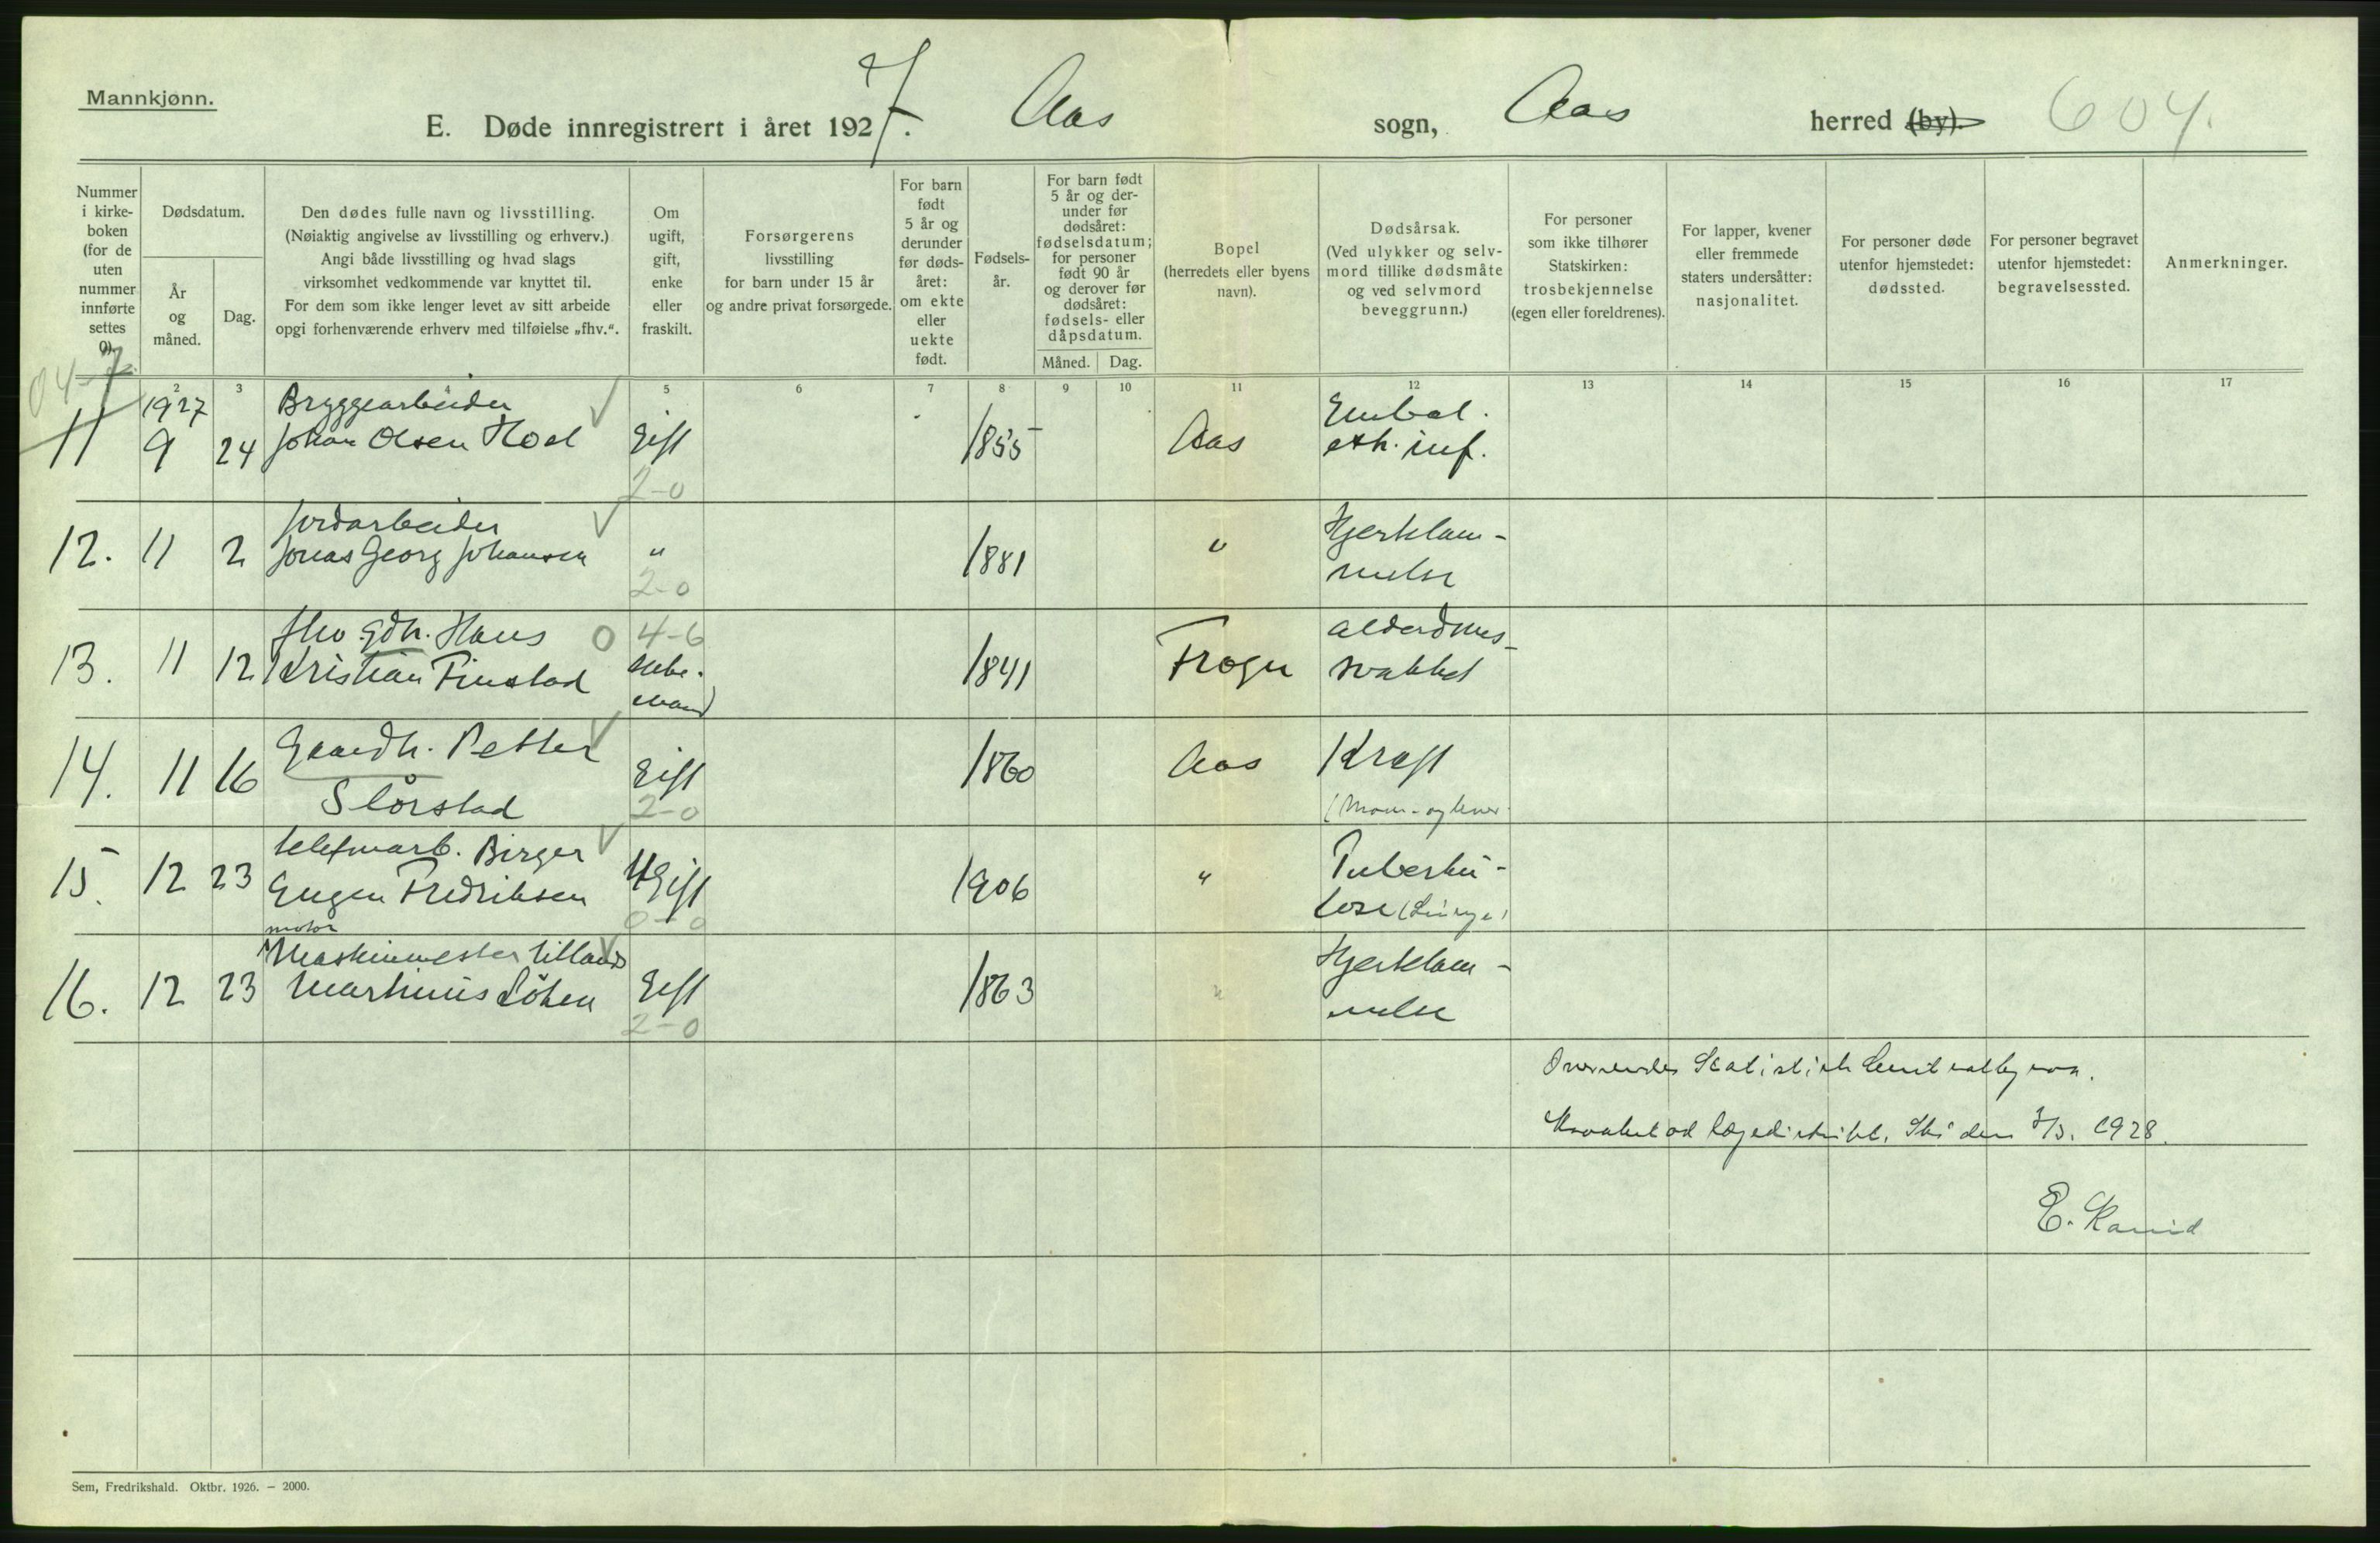 Mannkjønn.
E. Døde innregistrert i året 1927. Aas sogn, Aas herred (by). 604.
Nummer i kirke-boken (for de uten nummer innførte settes 0).
Dødsdatum.
År og måned.
Dag.
Den dødes fulle navn og livsstilling.
(Nøiaktig angivelse av livsstilling og erhverv.)
Angi både livsstilling og hvad slags
virksomhet vedkommende var knyttet til.
For dem som ikke lenger levet av sitt arbeide
opgi forhenværende erhverv med tilføielse „fhv.“.
Om ugift, gift, enke eller fraskilt.
Forsørgerens
livsstilling
for barn under 15 år
og andre privat forsørgede.
For barn født 5 år og derunder før døds-året: om ekte eller uekte født.
Fødsels-år.
For barn født 5 år og der-under før dødsåret: fødselsdatum; for personer født 90 år og derover før dødsåret: fødsels- eller dåpsdatum.
Måned. Dag.
Bopel
(herredets eller byens
navn).
Dødsårsak.
(Ved ulykker og selv-
mord tillike dødsmåte
og ved selvmord
beveggrunn.)
For personer
som ikke tilhører
Statskirken:
trosbekjennelse
(egen eller foreldrenes).
For lapper, kvener
eller fremmede
staters undersåtter:
nasjonalitet.
For personer døde
utenfor hjemstedet:
dødssted.
For personer begravet
utenfor hjemstedet:
begravelsessted.
Anmerkninger.
04-7
1 2 3 4 5 6 7 8 9 10 11 12 13 14 15 16 17
1927 Bryggearbeider Embol.
11 9 24 Johan Olsen Hoel Gift 1855 Aas inf.
2-0
Jordarbeider Hjerklam-
12. 11 2 Jonas Georg Johansen " 1881 " melse
2-0
fhv. gdbr. Hans 0 4-6 Alderdoms-
13. 11 12 Kristian Finstad enke- 1841 Frogn svakhet
mand
Gaardbr. Petter
14. 11 16 Slørstad Gift 1860 Aas Kreft
2-0 (Mave- og lever
telefonarb. Birger
15. 12 23 Eugen Fredriksen Gift 1906 " Tuberku-
0-0 lose (Lunge)
motor
Maskinmester Hjerklam-
16. 12 23 Martinus Løken Gift 1863 " melse
2-0
Oversendes Statistisk Centralbyraa.
Kraakstad lægedistrikt, Ski den 1928.
E.
Sem, Fredrikshald. Oktbr. 1926. — 2000.